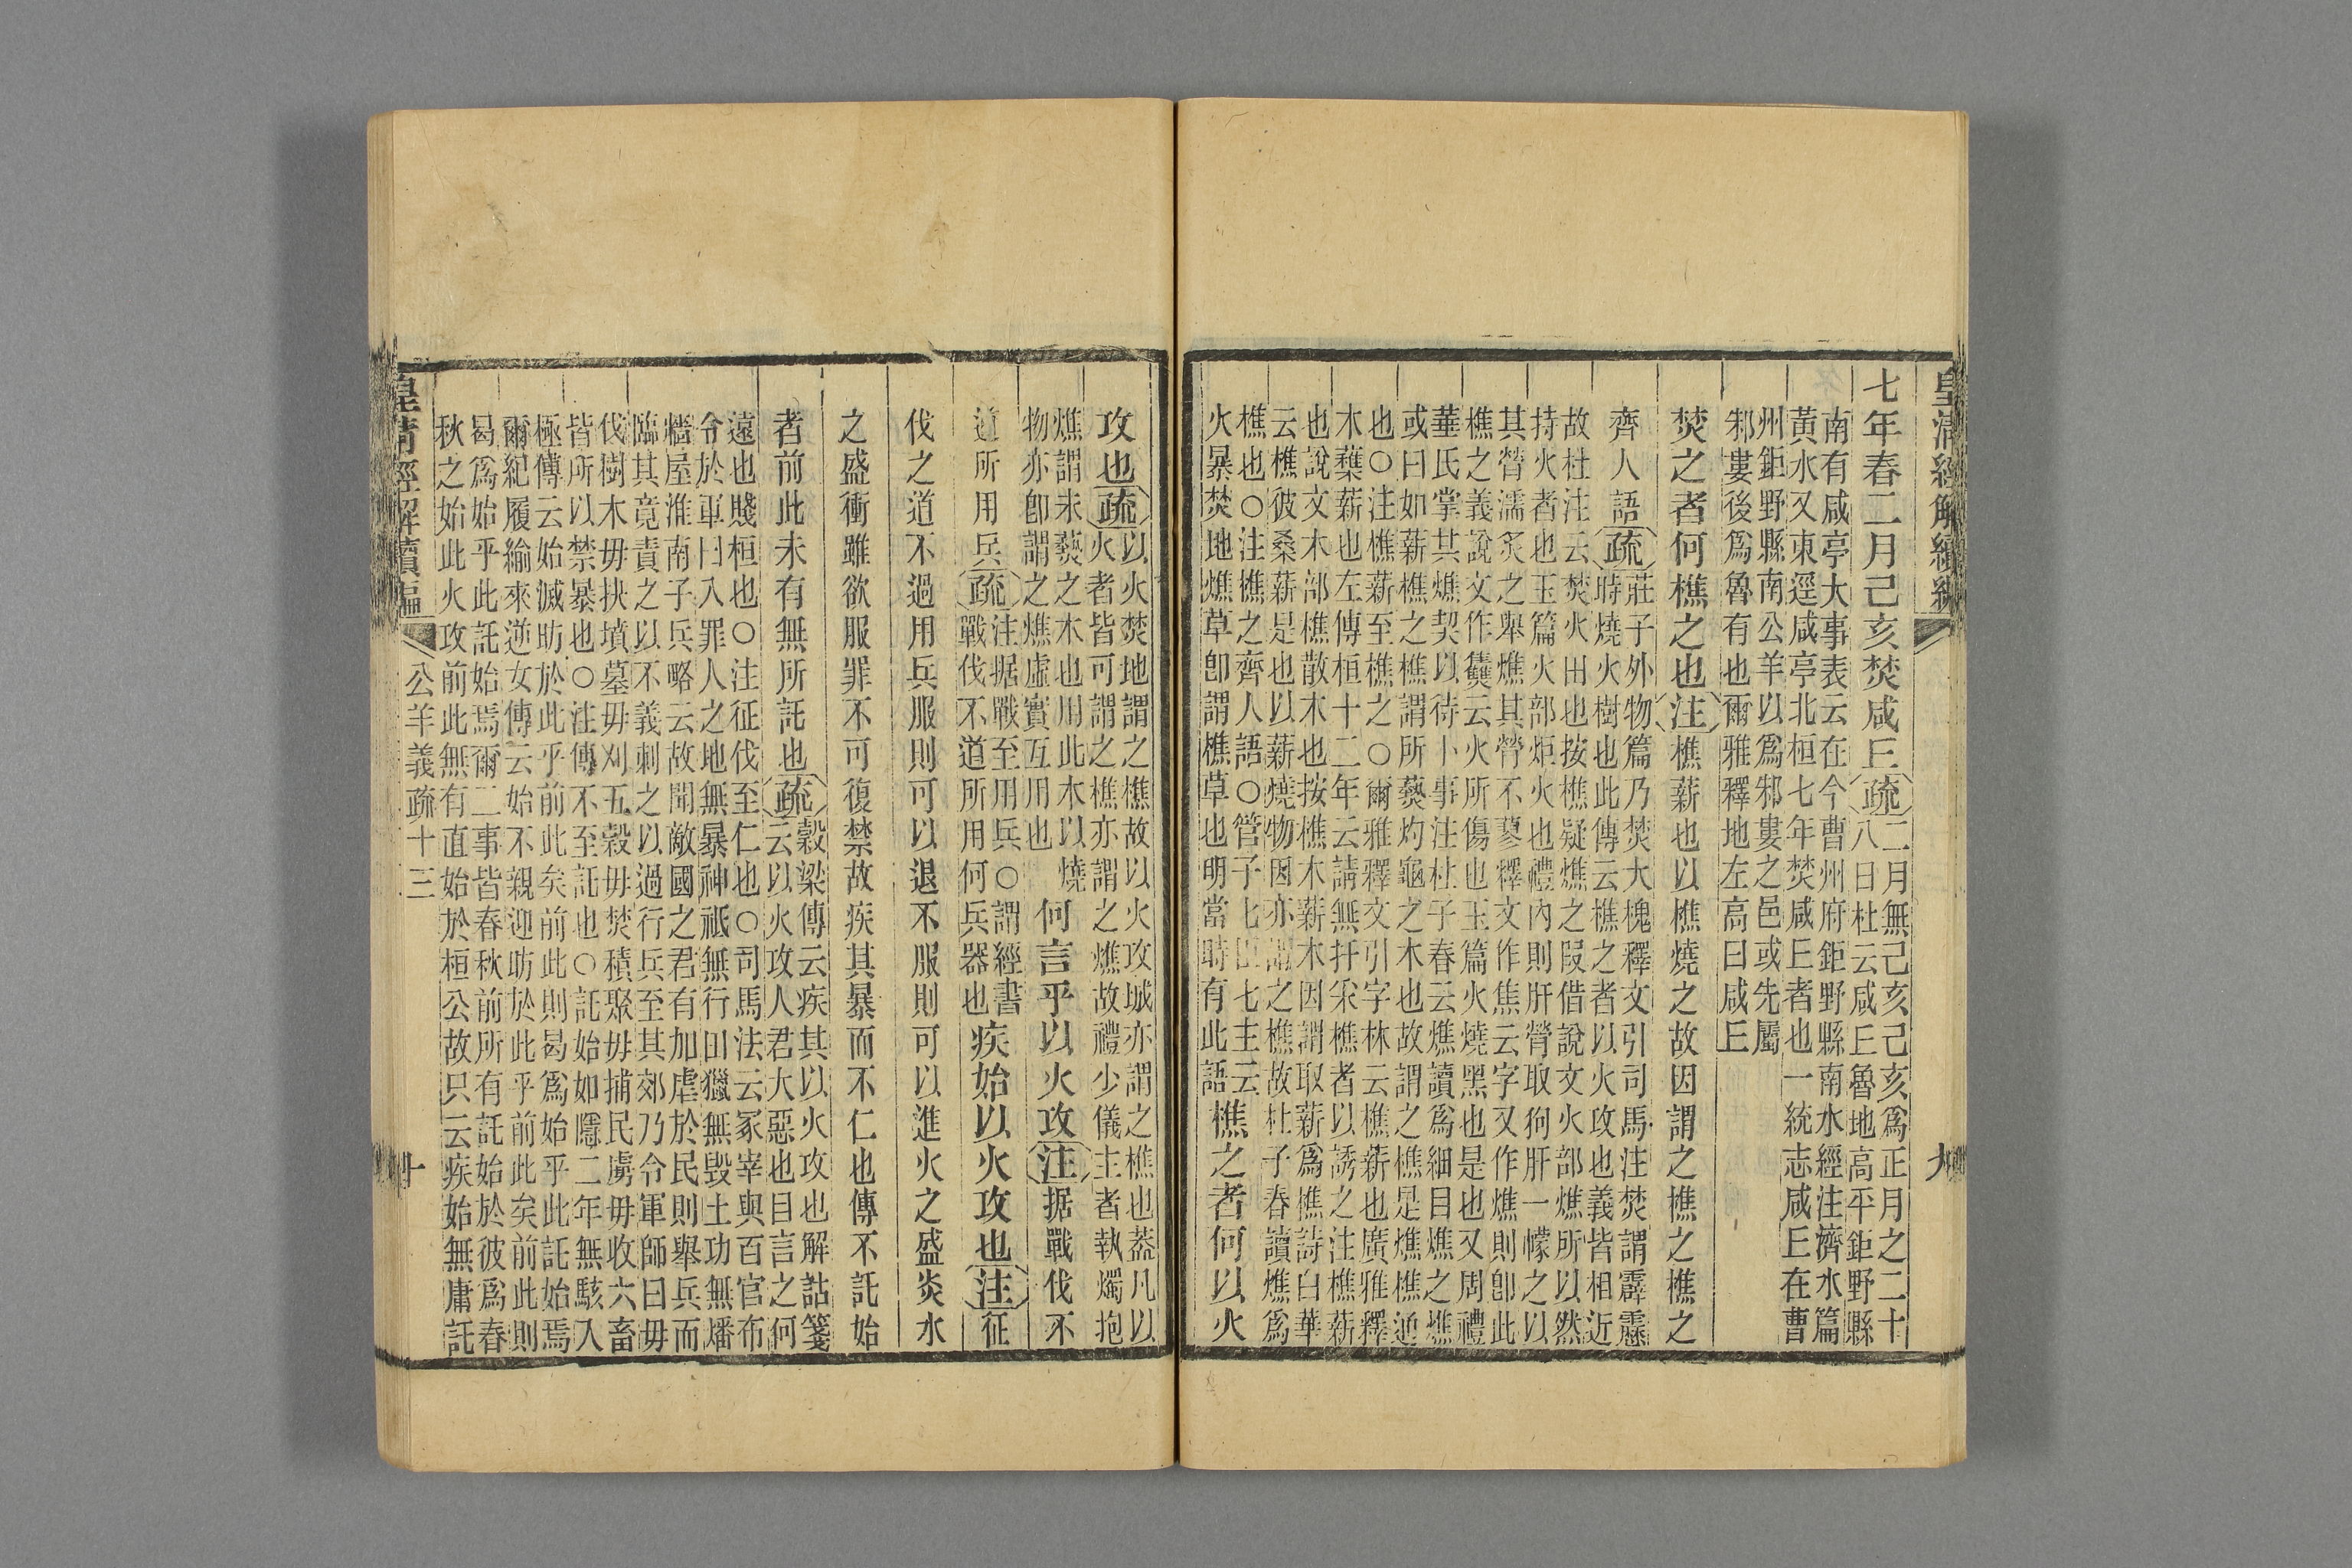 皇清經解續編
九
七年春二月己亥焚咸丘疏二月無己亥己亥為正月之二十
八日杜云咸丘魯地高平鉅野縣
南有咸亭大事表云在今曹州府鉅野縣南水經注濟水篇
黃水又東逕咸亭北桓七年焚咸丘者也一統志咸丘在曹
州鉅野縣南公羊以為邾婁之邑或先屬
邾婁後為魯有也爾雅釋地左高曰咸丘
焚之者何樵之也注樵薪也以樵燒之故因謂之樵之樵之
齊人語疏莊子外物篇乃焚大槐釋文引司馬注焚謂霹靂
時燒火樹也此傳云樵之者以火攻也義皆相近
故杜注云焚火田也按樵疑燋之叚借說文火部燋所以然
持火者也玉篇火部炬火也禮內則肝膋取狗肝一幪之以
其膋濡炙之舉燋其膋不蓼釋文作焦云字又作燋則即此
樵之義說文作㸈云火所傷也玉篇火燒黑也是也又周禮
菙氏掌其燋契以待卜事注杜子春云燋讀為細目燋之燋
或曰如薪樵之樵謂所爇灼龜之木也故謂之樵是燋樵通
也○注樵薪至樵之○爾雅釋文引字林云樵薪也廣雅釋
木蕘薪也左傳桓十二年云請無扞采樵者以誘之注樵薪
也說文木部樵散木也按樵木薪木因謂取薪為樵詩白華
云樵彼桑薪是也以薪燒物因亦謂之樵故杜子春讀燋為
樵也○注樵之齊人語○管子七臣七主云
火暴焚地燋草即謂樵草也明當時有此語樵之者何以火
攻也疏以火焚地謂之樵故以火攻城亦謂之樵也葢凡以
火者皆可謂之樵亦謂之燋故禮少儀主者執燭抱
燋謂未爇之木也用此木以燒
物亦即謂之燋虛實互用也何言乎以火攻注据戰伐不
道所用兵疏注据戰至用兵○謂經書
戰伐不道所用何兵器也疾始以火攻也注征
伐之道不過用兵服則可以退不服則可以進火之盛炎水
之盛衝雖欲服罪不可復禁故疾其暴而不仁也傳不託始
者前此未有無所託也疏穀梁傳云疾其以火攻也解詁箋
云以火攻人君大惡也目言之何
遠也賤桓也○注征伐至仁也○司馬法云冢宰與百官布
令於軍曰入罪人之地無暴神祇無行田獵無毀土功無燔
牆屋淮南子兵略云故聞敵國之君有加虐於民則舉兵而
臨其竟責之以不義刺之以過行兵至其郊乃令軍師曰毋
伐樹木毋抉墳墓毋刈五穀毋焚積聚毋捕民虜毋收六畜
皆所以禁暴也○注傳不至託也○託始如隱二年無駭入
極傳云始滅昉於此乎前此矣前此則曷為始乎此託始焉
爾紀履緰來逆女傳云始不親迎昉於此乎前此矣前此則
曷為始乎此託始焉爾二事皆春秋前所有託始於彼為春
秋之始此火攻前此無有直始於桓公故只云疾始無庸託
皇清經解續編
公羊義疏十三
十